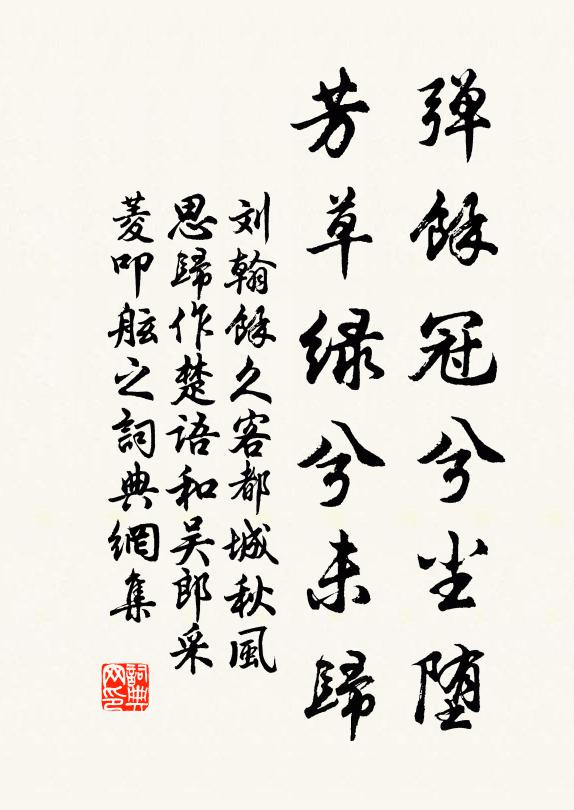 弹馀冠兮尘堕
芳草绿兮未歸
刘翰馀久客都城秋風
思歸作楚语和吴郎采
菱叩舷之詞典網集
詞典
网印